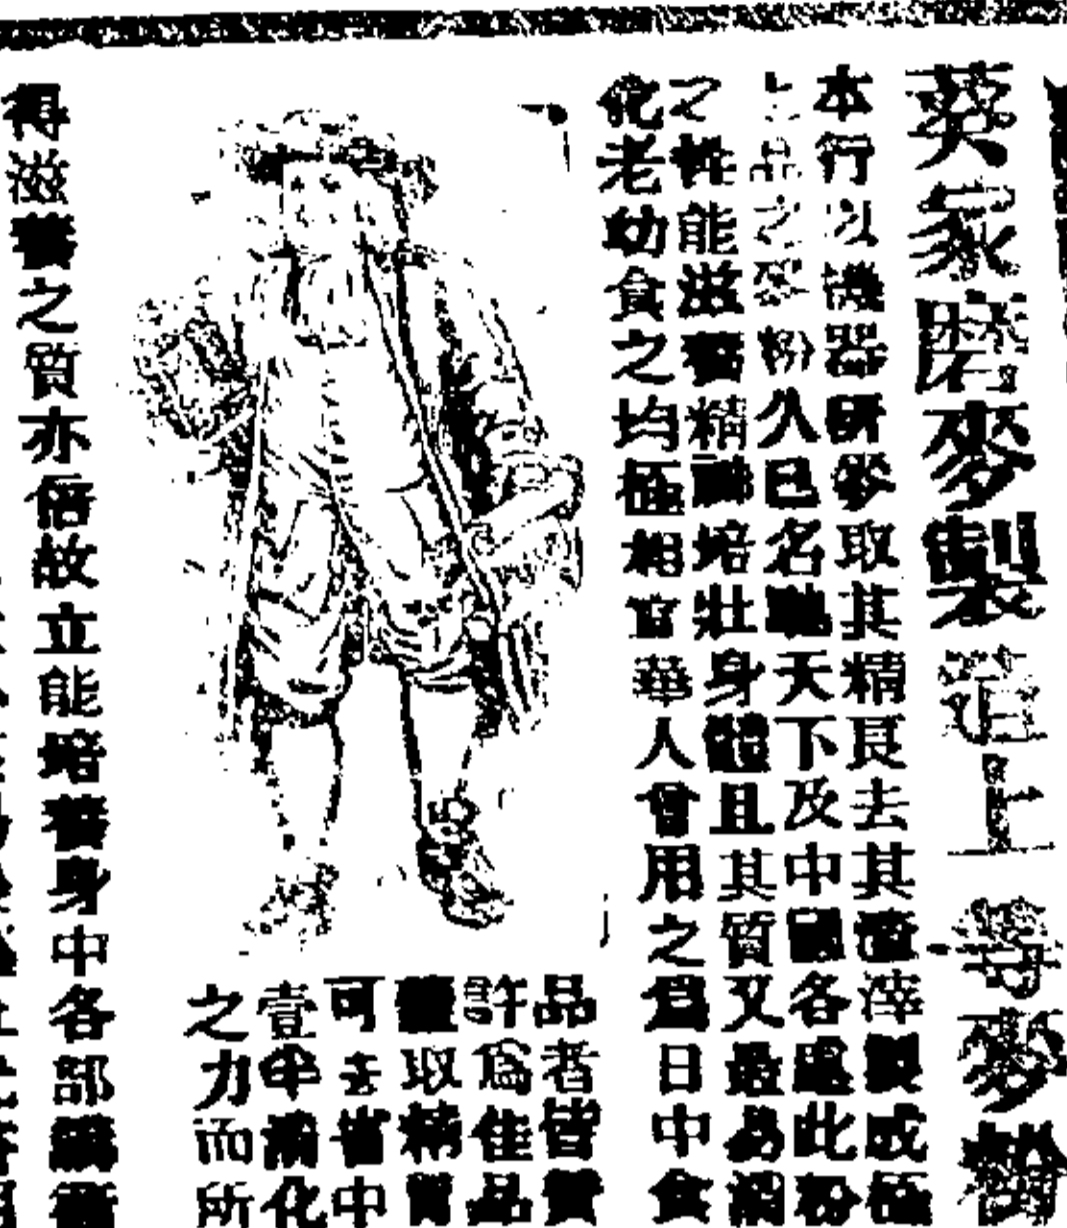 葵家磨麥製造上等麥粉
本行以機器研麥取其精良去其渣滓製成極
上品之麥粉久已名聽天下及中國各處此粉
之性能滋養精神培壯身體且其質又最易消
化老幼食之均極相宜華人曾用之爲日中食
品者皆賞
許爲佳品
蓋取精質
可去皆中
壹半消化
之力而所
得滋養之質亦倍故立能培養身中各部臟